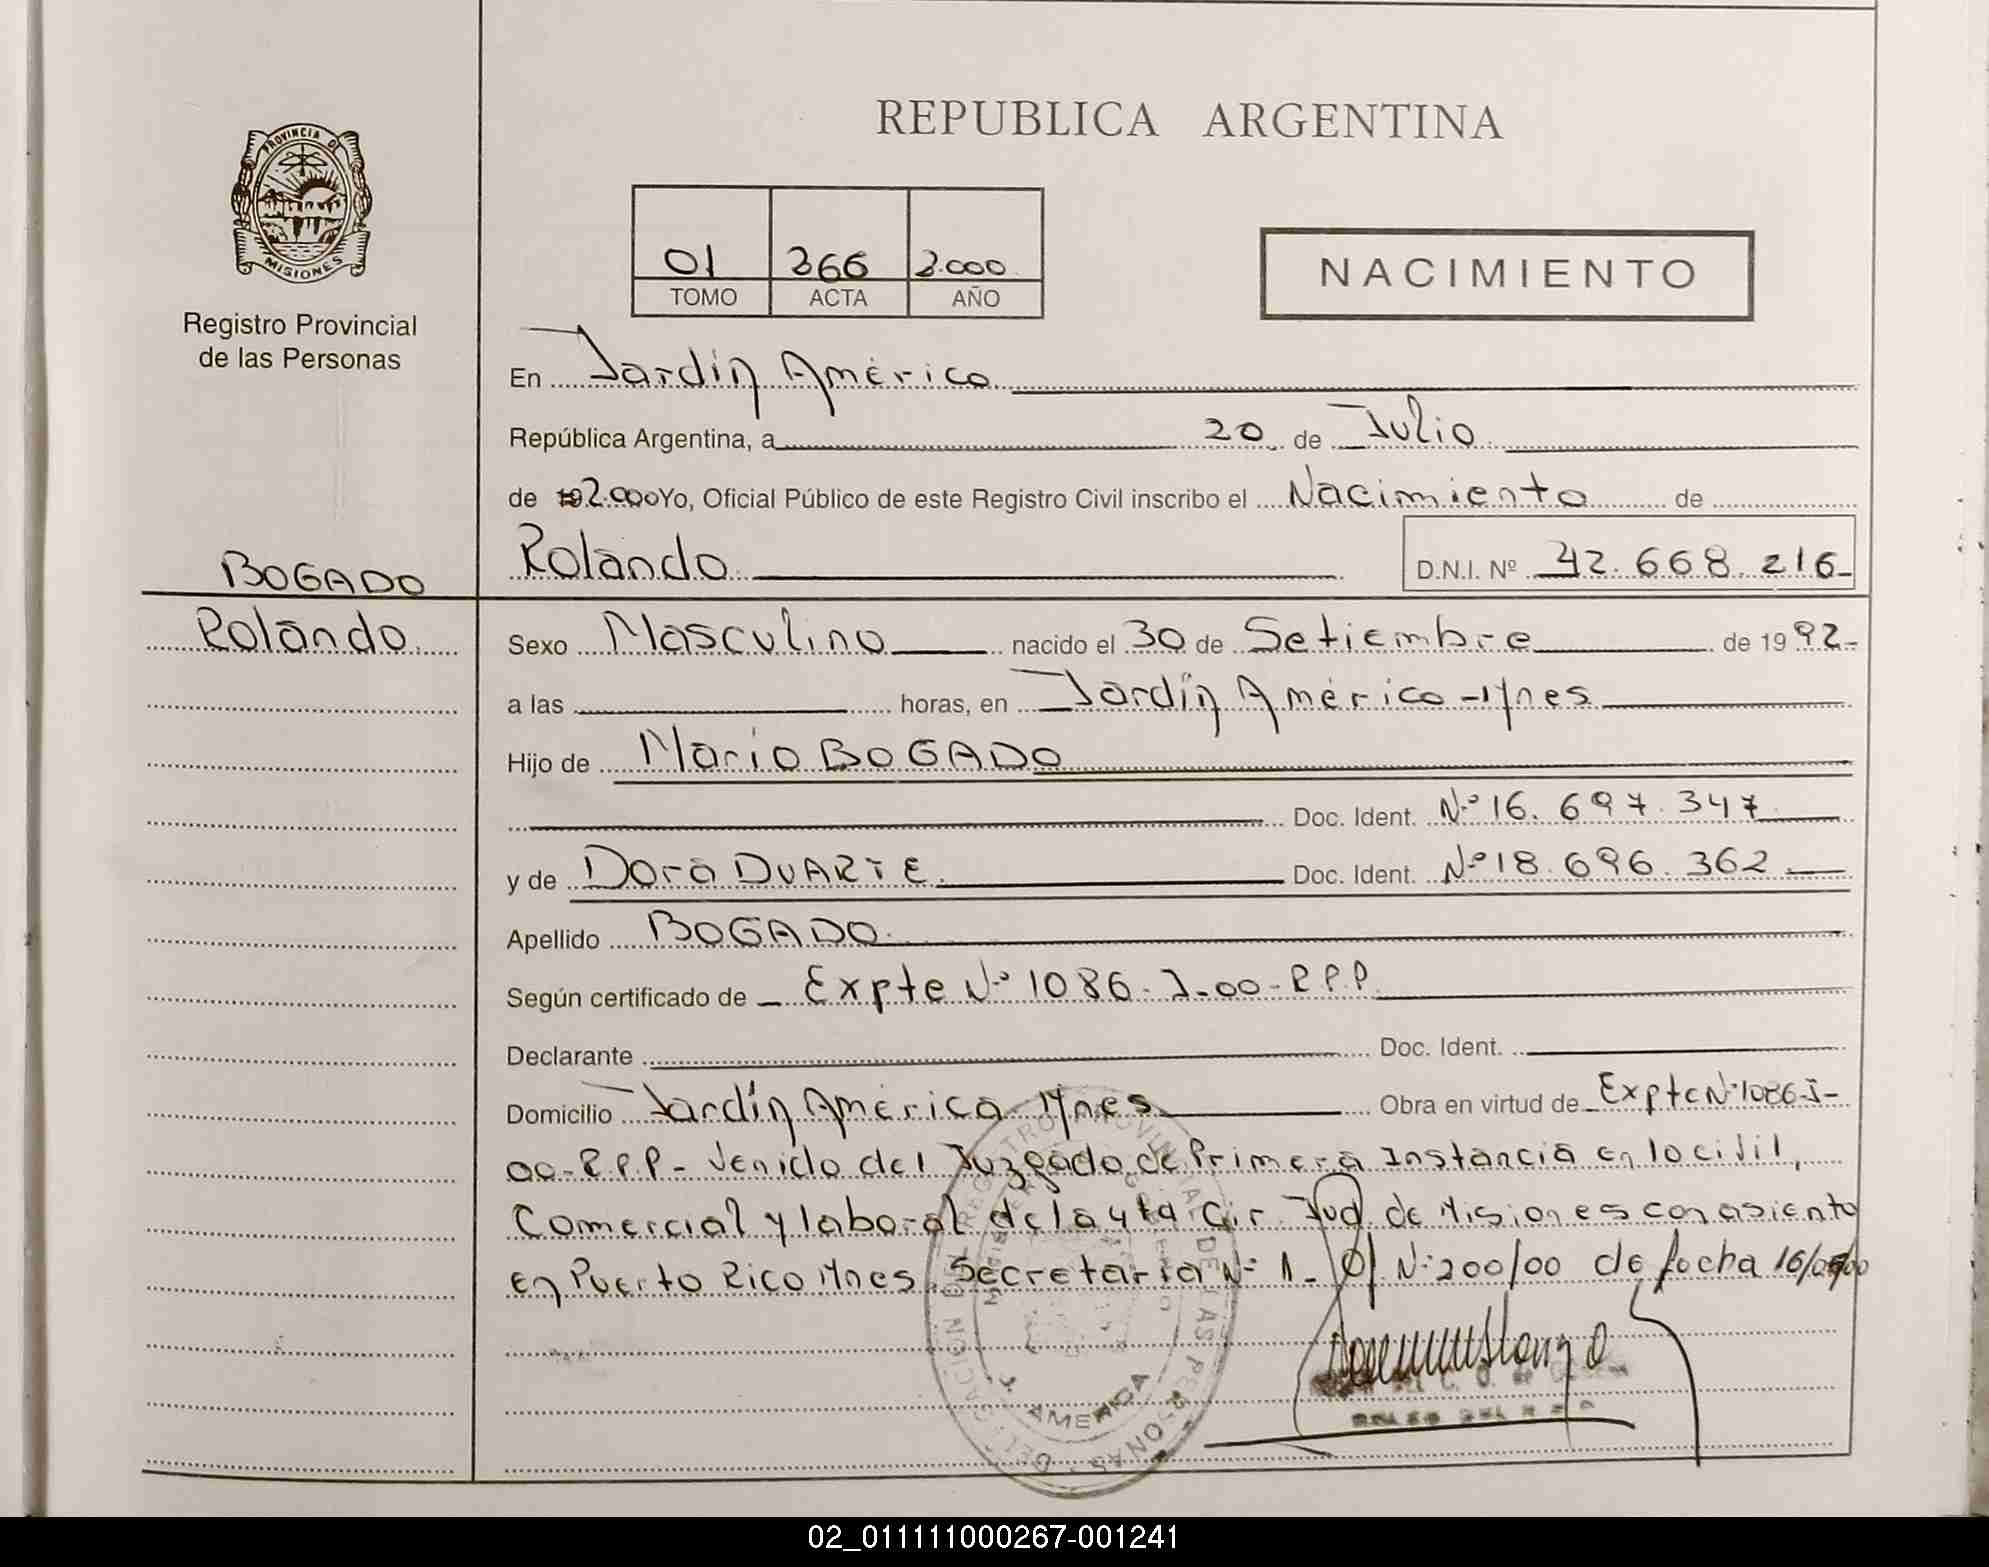 REPUBLICA ARGENTINA
PROVINCIA DE
MISIONES
Registro Provincial
de las Personas
01 366 2.000
TOMO ACTA AÑO
NACIMIENTO
En Jardín América
República Argentina, a 20 de Julio
de 192.000 Yo, Oficial Público de este Registro Civil inscribo el Nacimiento de
Rolando D.N.I. Nº 42.668.216-
BOGADO
Rolando
Sexo Masculino nacido el 30 de Setiembre de 1992-
a las horas, en Jardín América - Mnes
Hijo de Mario BOGADO
Doc. Ident. Nº 16.697.347
y de Dora DUARTE Doc. Ident. Nº 18.696.362
Apellido BOGADO
Según certificado de Expte Nº 1086-J-00-R.P.P.
Declarante Doc. Ident.
Domicilio Jardín América Mnes Obra en virtud de Expte Nº 1086-J-
00-R.P.P- Venido del Juzgado de Primera Instancia en lo civil,
Comercial y laboral de la 4ta Cir. Jud. de Misiones con asiento
en Puerto Rico Mnes. Secretaria Nº 1_ Of Nº 200/00 de fecha
AMERICA
02_011111000267-001241